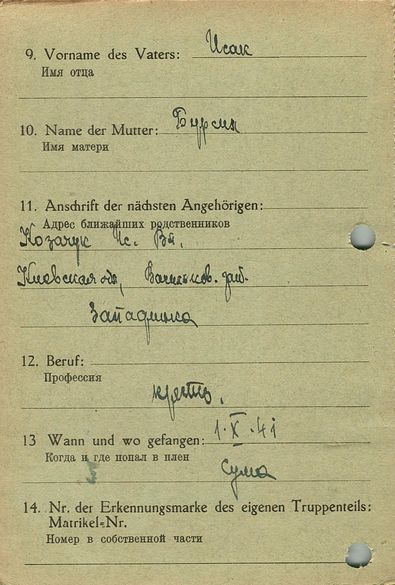 9. Vorname des Vaters: Исак
Имя отца
10. Name der Mutter:
Имя матери
11. Anschrift der nächsten Angehörigen:
Адрес ближайших родственников
Козачук Ис. Вл.
Киевская об, Васильков. рай.
Западинка
12. Beruf:
Профессия
крест.
13 Wann und wo gefangen: 1.X.41
Когда и где попал в плен
Сума
14. Nr. der Erkennungsmarke des eigenen Truppenteils:
Matrikel-Nr.
Номер в собственной части